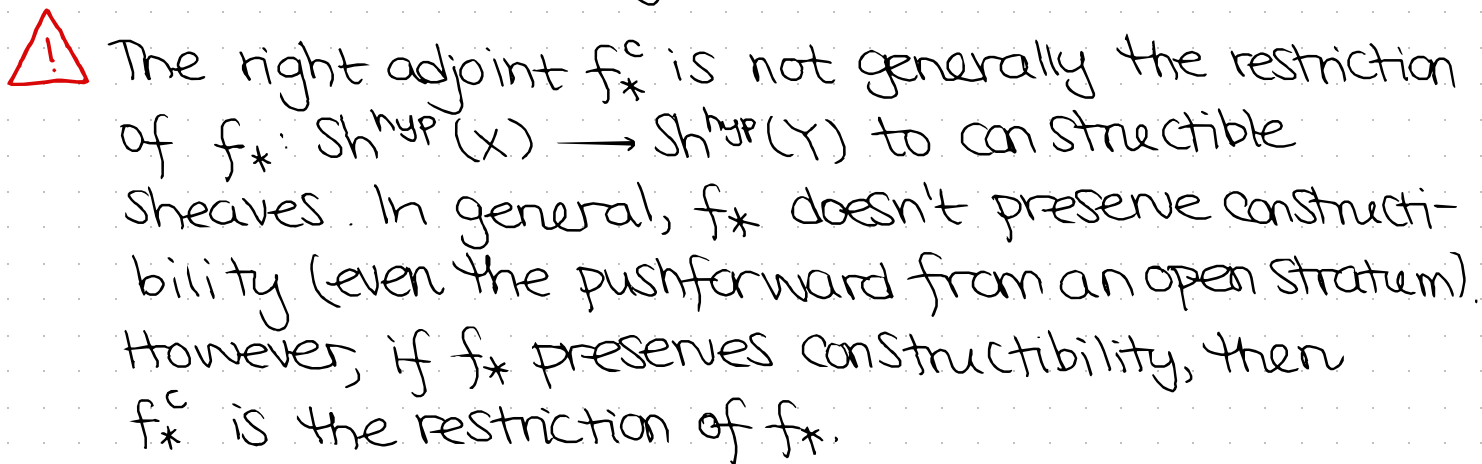 ! The right adjoint f_*^c is not generally the restriction
of f_*: Sh^hyp(X) → Sh^hyp(Y) to constructible
sheaves. In general, f_* doesn't preserve constructi-
bility (even the pushforward from an open stratum).
However, if f_* preserves constructibility, then
f_*^c is the restriction of f_*.